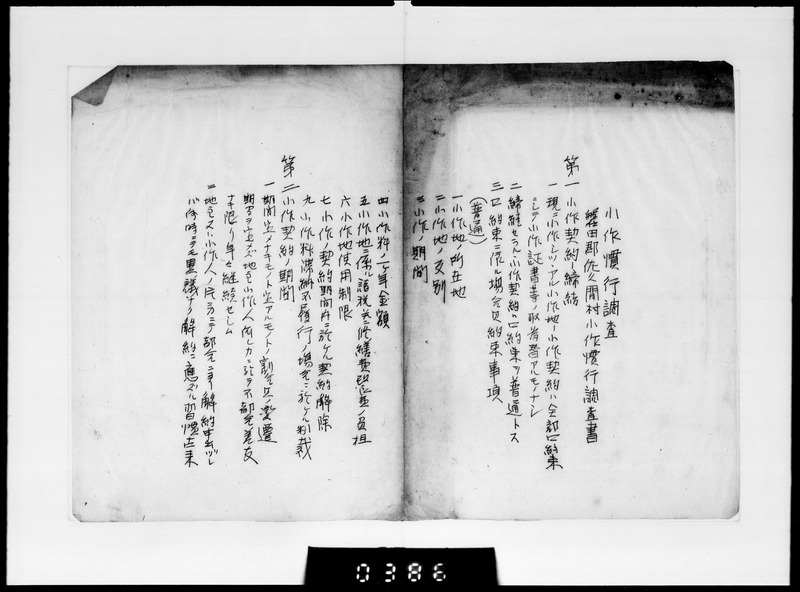 小作慣行調査
磐田郡佐久間村小作慣行調査書
第一 小作契約ノ締結
一 現ニ小作シツヽアル小作地ノ小作契約ハ全部口約束
ニシテ小作証書等ノ取為替アルモノナシ
二 締結セラルヽ小作契約ハ口約束ヲ普通トス
三 口約束ニ依ル場合ノ約束事項
(普通)
一 小作地ノ所在地
二 小作地ノ反別
三 小作ノ期間
四 小作料ノ一ケ年金額
五 小作地ニ係ル諸税並ニ修繕費ノ負担
六 小作地使用制限
七 小作ノ契約期間内ニ於ケル契約解除
九 小作料滞納不履行ノ場合ニ於ケル制裁
第二 小作契約ノ期間
一 期間ノ定メナキモノト定アルモノトノ割合及ノ変遷
期間ヲ定メズ地主小作人何レカニ於テ不都合ナキ
限リ年々継続セシム
二 地主又ハ小作人ノ一方ニテ都合ニヨリ解約申出ヅレ
バ何時ニテモ異議ナク解約ニ応ズル習慣
0386